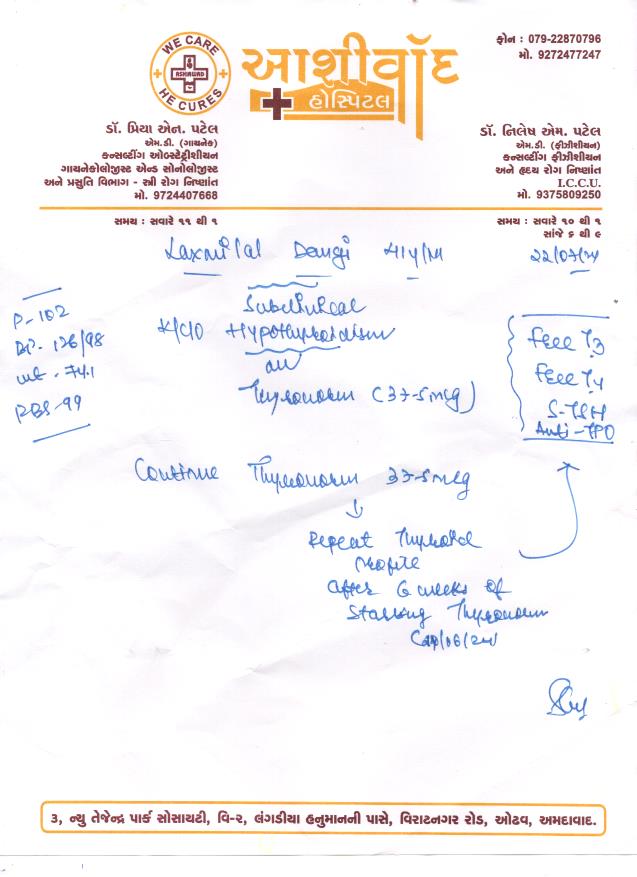 WE CARE
ASHRIWAD
HE CURES
આશીર્વાદ
હોસ્પિટલ
ફોન : 079-22870796
મો. 9272477247
ડૉ. પ્રિયા એન. પટેલ
એમ.ડી. (ગાયનેક)
કન્સલ્ટીંગ ઓબ્સ્ટેટ્રીશીયન
ગાયનેકોલોજીસ્ટ એન્ડ સોનોલોજીસ્ટ
અને પ્રસુતિ વિભાગ - સ્ત્રી રોગ નિષ્ણાંત
મો. 9724407668
ડૉ. નિલેષ એમ. પટેલ
એમ.ડી. (ફીઝીશીયન)
કન્સલ્ટીંગ ફીઝીશીયન
અને હૃદય રોગ નિષ્ણાંત
I.C.C.U.
મો. 9375809250
સમય : સવારે ૧૧ થી ૧
સમય : સવારે ૧૦ થી ૧
સાંજે ૬ થી ૯
Laxmilal Dangi 41y/M 22/07/24
P- 102
BP- 126/98
wt - 74.1
RBS-99
Subclinical
K/C/O Hypothyroidism
on
Thyronorm (37.5mcg)
Free T3
Free T4
S-TSH
Anti-TPO
Continue Thyronorm 37.5mcg
Repeat Thyroid
Profile
After 6 weeks of
Starting Thyronorm
૩, ન્યુ તેજેન્દ્ર પાર્ક સોસાયટી, વિ-૨, લંગડીયા હનુમાનની પાસે, વિરાટનગર રોડ, ઓઢવ, અમદાવાદ.